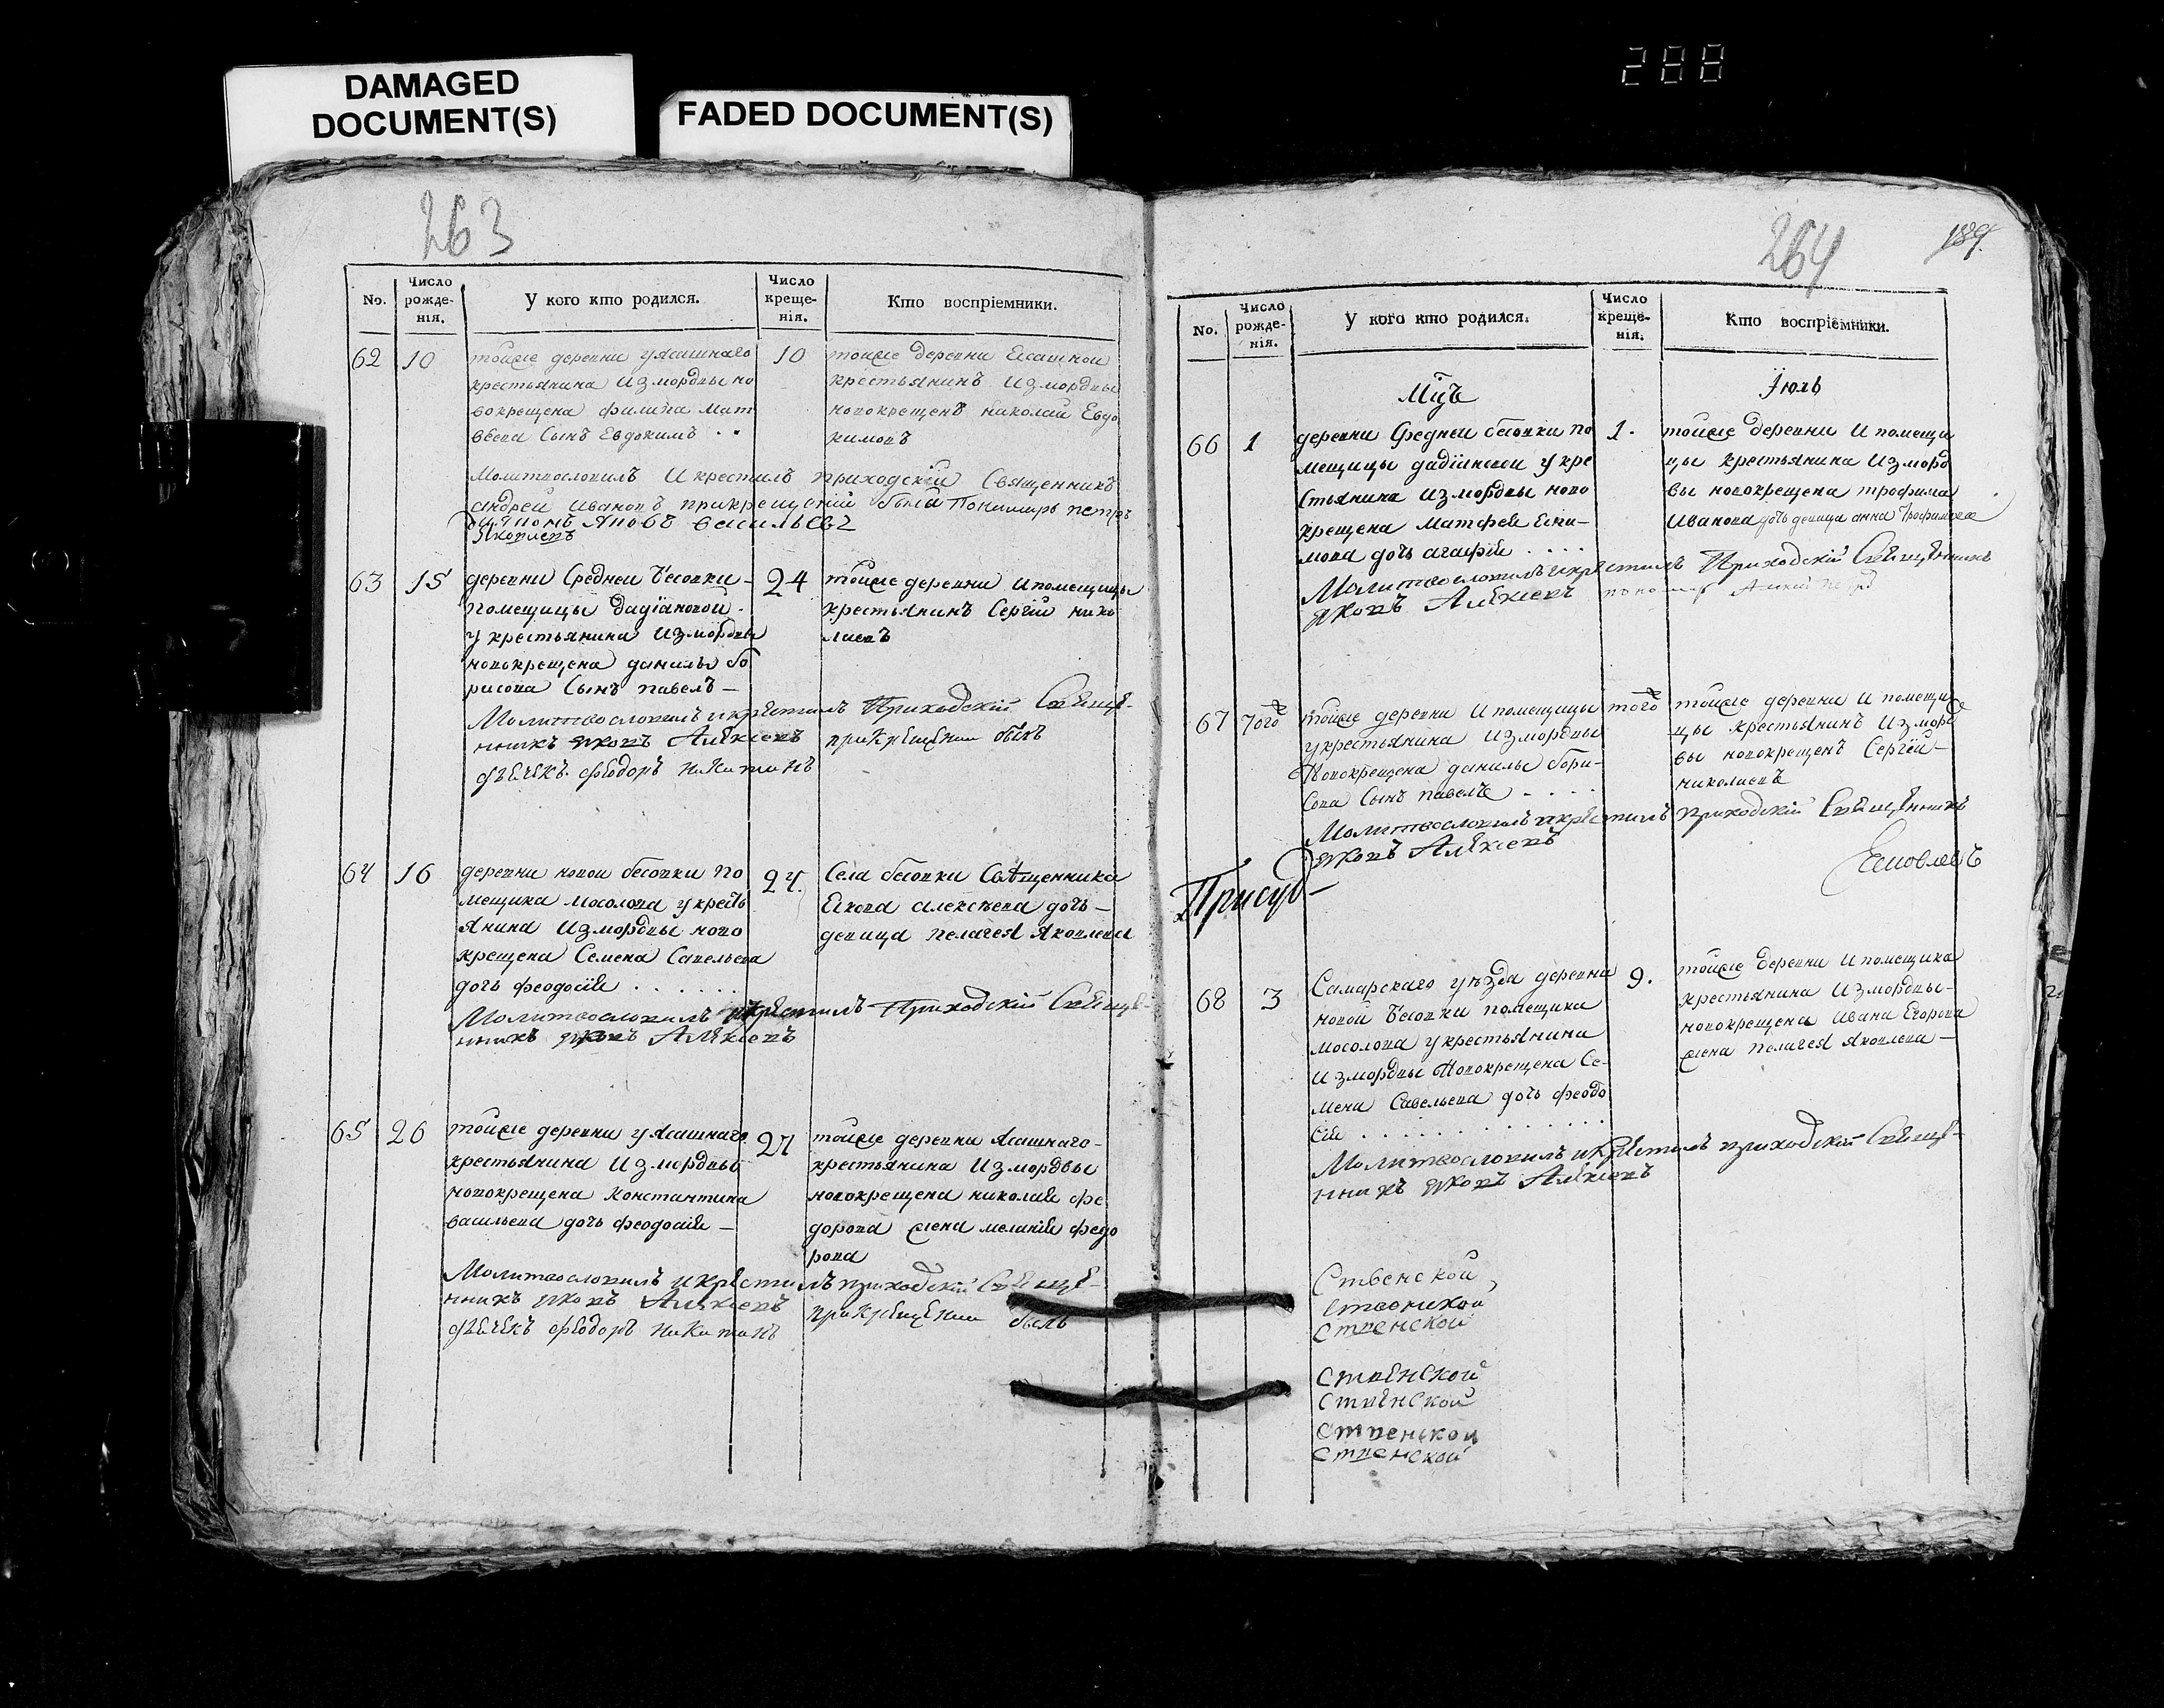 DAMAGED
DOCUMENT(S)
FADED DOCUMENT(S)
288
263
No.
Число рожде-нія.
У кого кто родился.
Число креще-нія.
Кто воспріемники.
62 10
тойже деревни уясашнаго
крестьянина измордвы но
вокрещена филипа Мат
вѣева сынъ Евдокимъ
10
тойже деревни Ясашной
крестьянинъ измордвы
новокрещенъ николай Евдо
кимовъ
Молитвословилъ и крестилъ приходскій Священникъ
андрей Ивановъ прикрещеніи были Пономарь петръ
Яковлевъ
63 15
деревни Средней бесовки
помещицы дадіановой
у крестьянина измордвы
новокрещена данилы бо
рисова сынъ павелъ
24
тойже деревни ипомещицы
крестьянинъ Сергій нико
лаевъ
Молитвословилъ икрестилъ Приходскій Свеще-
нникъ яковъ Алексіевъ прикрещении былъ
дьечекъ феодоръ никитинъ
64 16
деревни новой бесовки по
мещика мосолова укресть
янина измордвы ново
крещена Семена Савельева
дочь феодосія
24.
Села бесовки Священника
Якова алексеева дочь
девица пелагея Яковлева
Молитвословилъ икрестилъ Приходскій Свеще-
нникъ яковъ Алексіевъ
65 26
тойже деревни уясашнаго
крестьянина измордвы
новокрещена константина
васильева дочь феодосія
27
тойже деревни ясашнаго
крестьянина измордвы
новокрещена николая фе
дорова жена меланія федо
рова
Молитвословилъ икрестилъ приходскій Свеще-
нникъ яковъ Алексіевъ прикрещении былъ
дьечекъ феодоръ никитинъ
264
189.
No.
Число рожде-нія.
У кого кто родился.
Число креще-нія.
Кто воспріемники.
Мцъ Іюль
66 1
деревни Средней бесовки по
мещицы дадіановой укре
стьянина измордвы ново
крещена Матфея Еки-
мова дочь агафія
1.
тойже деревни ипомещи
цы крестьянина изморд
вы новокрещена трофима
Иванова дочь девица анна Трофимова
Молитвословилъ икрестилъ Приходскій Священникъ
яковъ Алексіевъ
67 того
тойже деревни ипомещицы
укрестьянина измордвы
новокрещена данилы бори-
сова сынъ павелъ
того
тойже деревни ипомещи
цы крестьянинъ измор
вы новокрещенъ Сергій
николаевъ
Молитвословилъ икрестилъ приходскій Священникъ
яковъ Алексіевъ
Присуд-
68 3
Самарскаго уѣзда деревни
новой бесовки помещика
мосолова укрестьянина
измордвы новокрещена Се-
мена Савельева дочь феодо
сія
9.
тойже деревни ипомещика
крестьянина измордвы
новокрещена ивана Егорова
жена пелагея Яковлева
Молитвословилъ икрестилъ приходской Свеще-
нникъ яковъ Алексіевъ
Ственской
Ственской
Ственской
Ственской
Ственской
Ственской